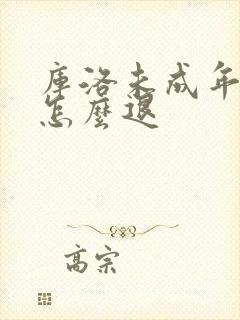 庫洛未成年
怎麼退
高宗